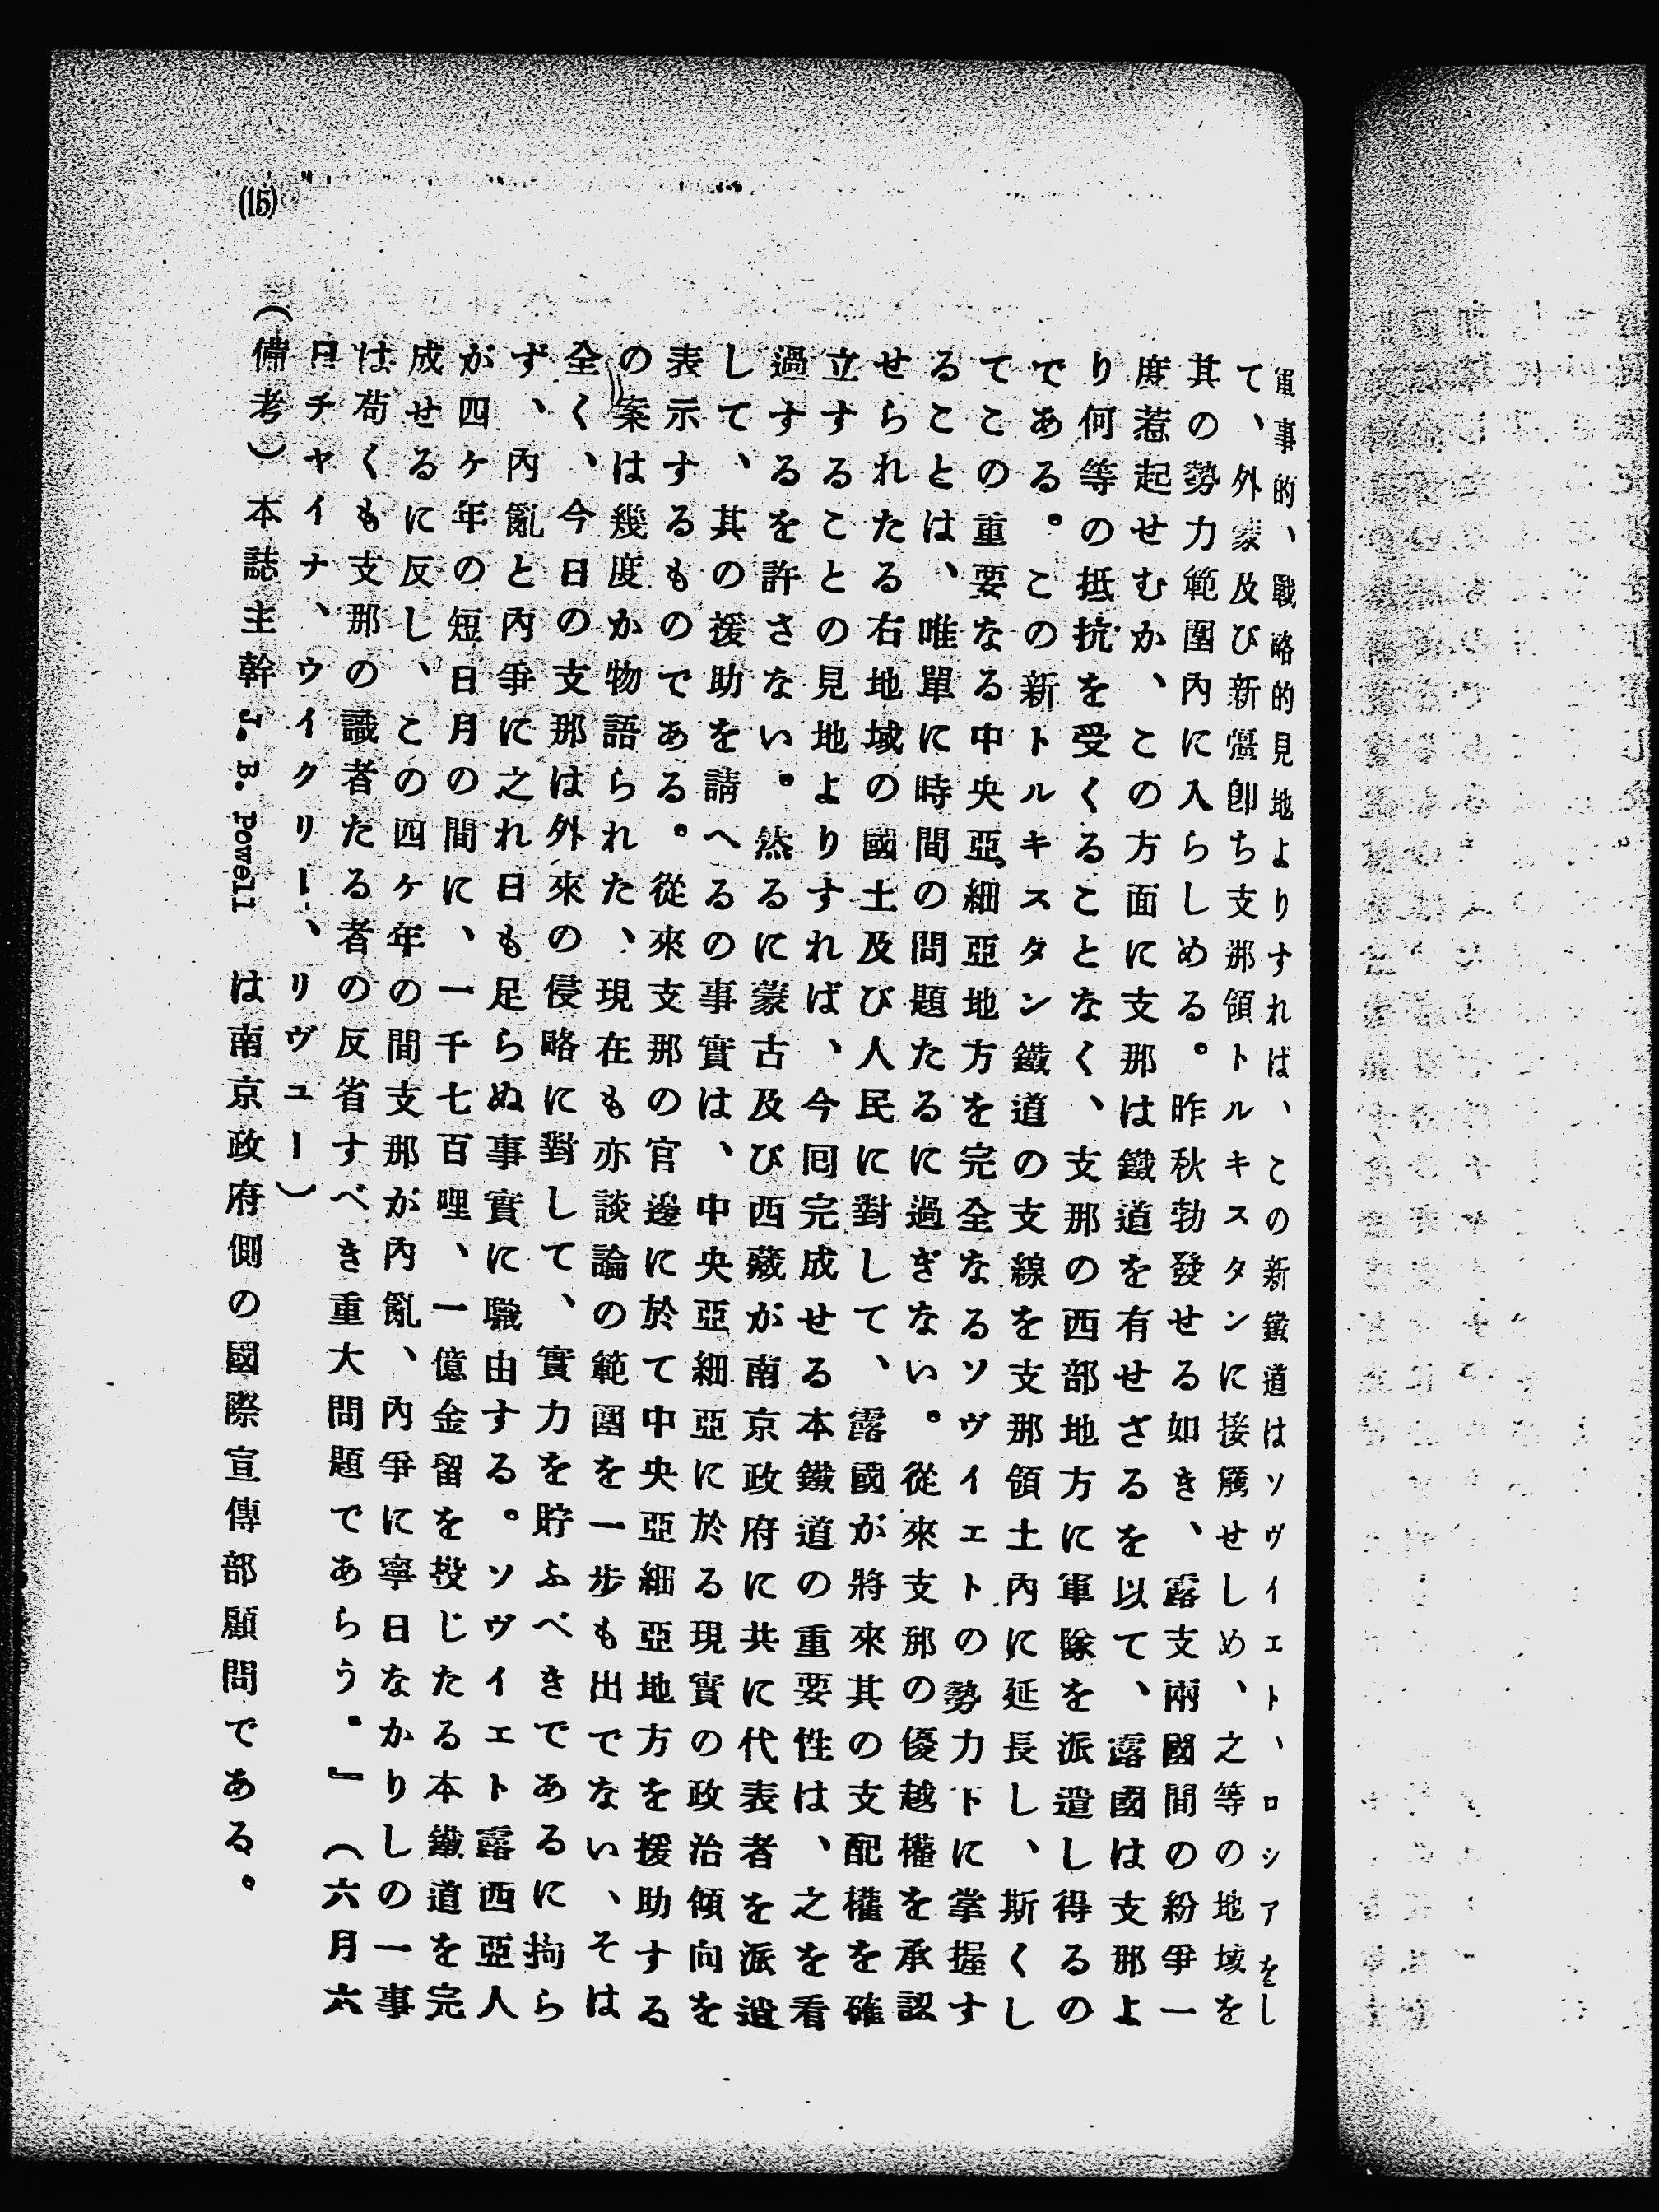 軍事的、戰略的見地よりすれば、この新鐵道はソヴイエト、ロシアをし
て、外蒙及び新彊卽ち支那領トルキスタンに接觸せしめ、之等の地域を
其の勢力範圍內に入らしめる。昨秋勃發せる如き、露支兩國間の紛爭一
度惹起せむか、この方面に支那は鐵道を有せざるを以て、露國は支那よ
り何等の抵抗を受くることなく、支那の西部地方に軍隊を派遣し得るの
である。この新トルキスタン鐵道の支線を支那領土內に延長し、斯くし
てこの重要なる中央亞細亞地方を完全なるソヴイエトの勢力下に掌握す
ることは、唯單に時間の問題たるに過ぎない。從來支那の優越權を承認
せられたる右地域の國土及び人民に對して、露國が將來其の支配權を確
立することの見地よりすれば、今回完成せる本鐵道の重要性は、之を看
過するを許さない。然るに蒙古及び西藏が南京政府に共に代表者を派遣
して、其の援助を請へるの事實は、中央亞細亞に於る現實の政治傾向を
表示するものである。從來支那の官邊に於て中央亞細亞地方を援助する
の案は幾度か物語られた、現在も亦談論の範圍を一步も出でない、そは
全く、今日の支那は外來の侵略に對して、實力を貯ふべきであるに拘ら
ず、內亂と內爭に之れ日も足らぬ事實に職由する。ソヴイエト露西亞人
が四ケ年の短日月の間に、一千七百哩、一億金留を投じたる本鐵道を完
成せるに反し、この四ケ年の間支那が內亂、內爭に寧日なかりしの一事
は苟くも支那の識者たる者の反省すべき重大問題であらう。』（六月六
日チヤイナ、ウイクリー、リヴユー）
（備考）本誌主幹 J. B. Powell は南京政府側の國際宣傳部顧問である。
(15)